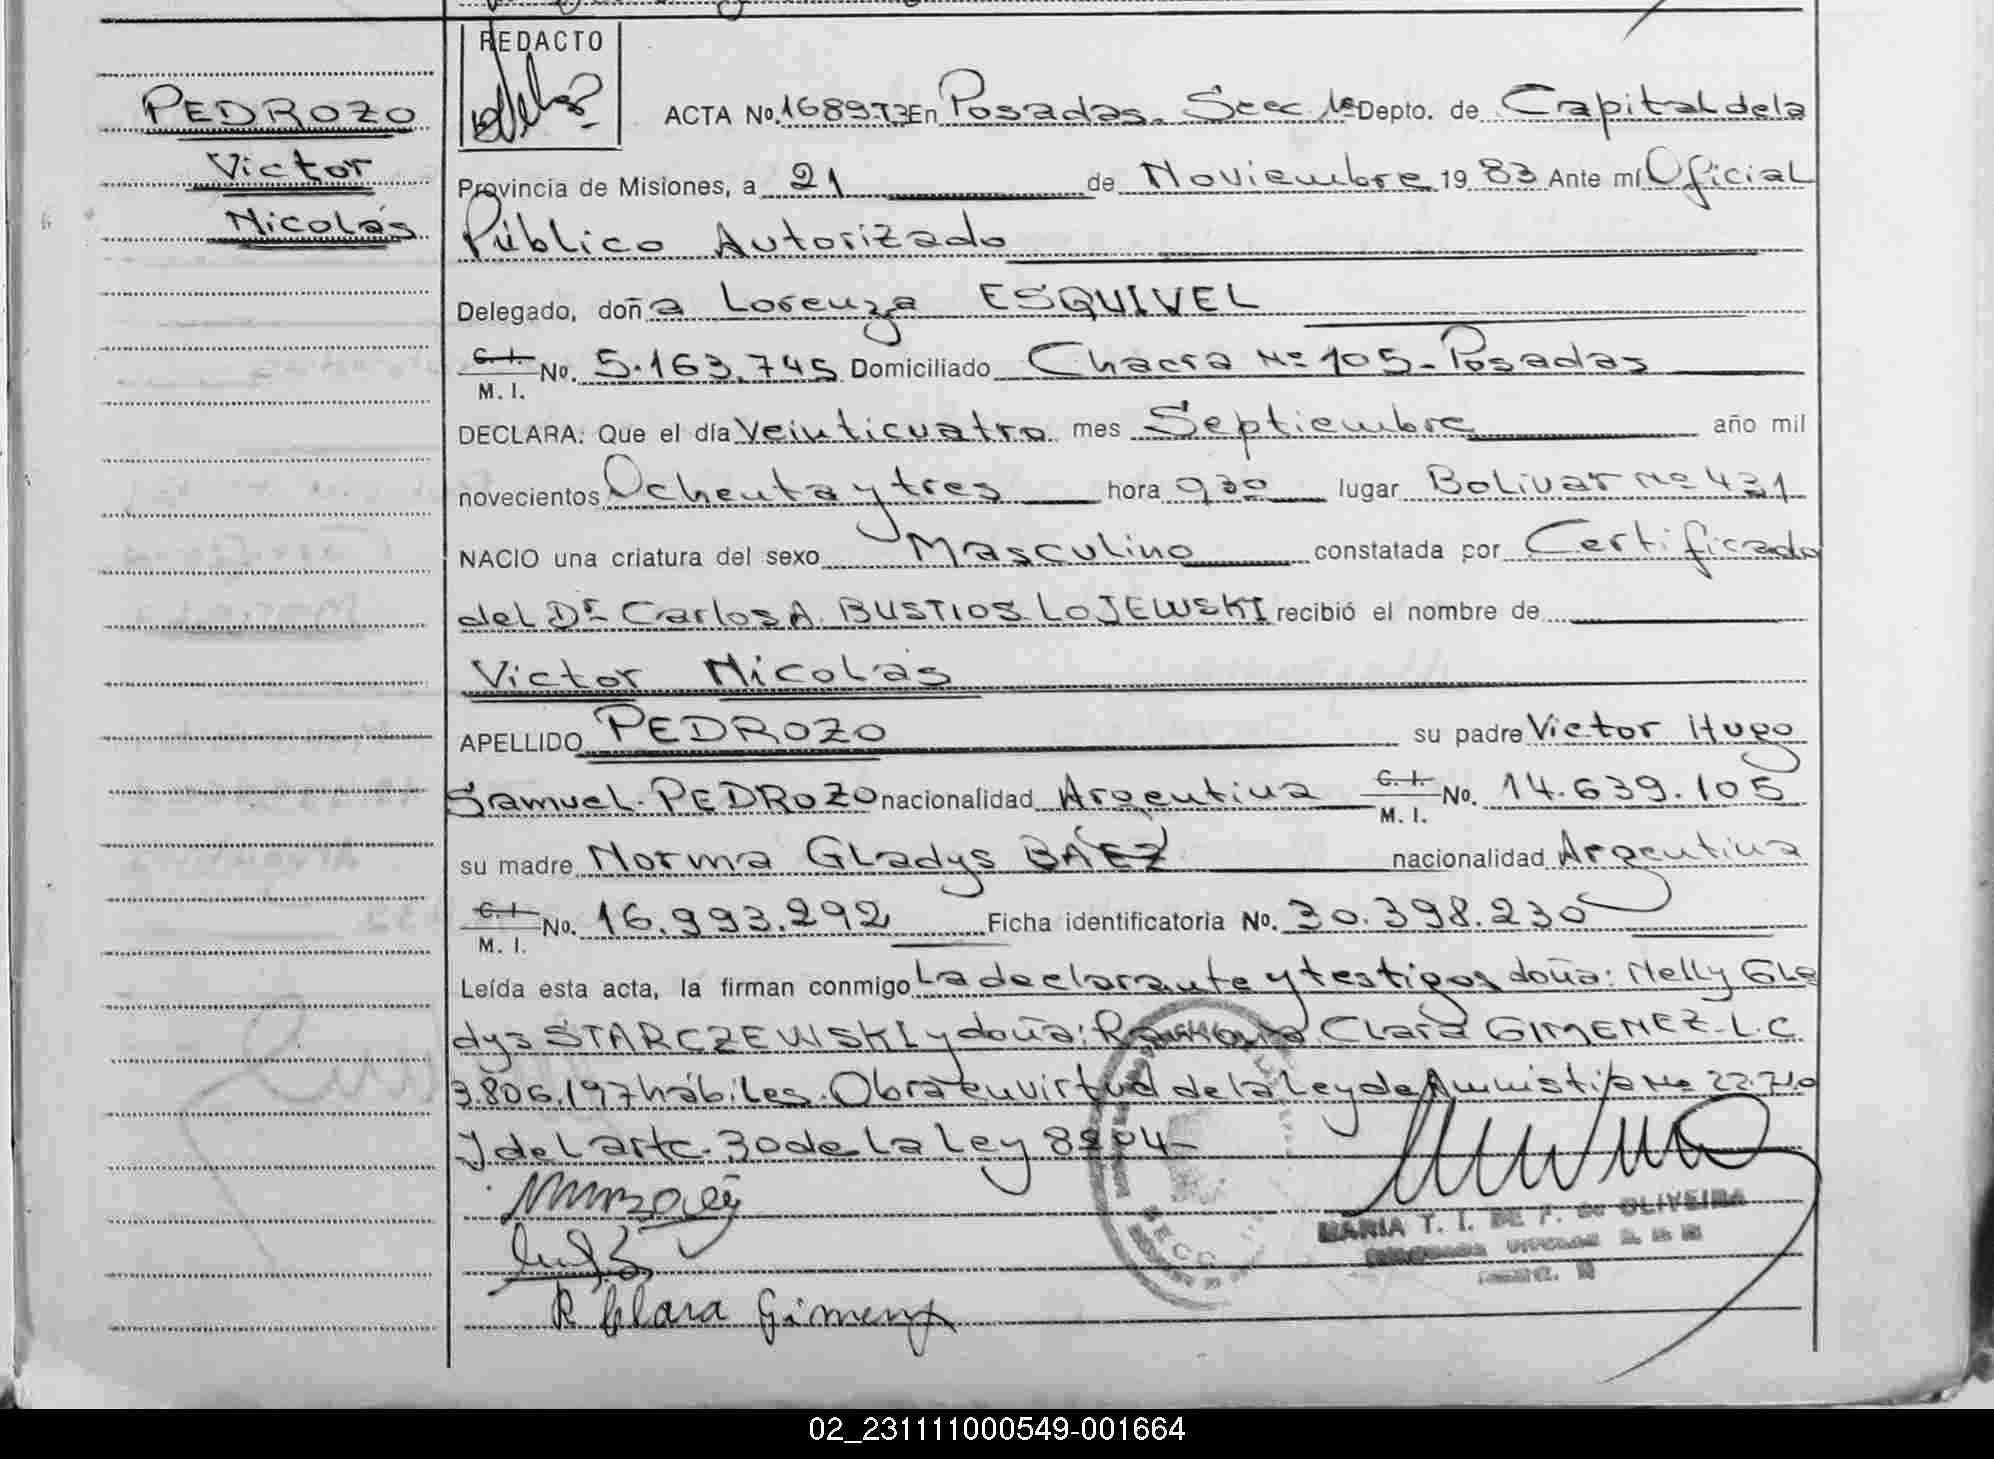 REDACTO
PEDROZO
Victor
Nicolás
ACTA No. 1689-T3 En Posadas. Secc. 1ª Depto. de Capital de la
Provincia de Misiones, a 21 de Noviembre 19 83 Ante mí Oficial
Público Autorizado
Delegado, doña Lorenza ESQUIVEL
C. I. M. I. No. 5.163.745 Domiciliado Chacra Nº 105-Posadas
DECLARA: Que el día Veinticuatro mes Septiembre año mil
novecientos Ochenta y tres hora 9 30 lugar Bolivar Nº 431
NACIO una criatura del sexo Masculino constatada por Certificado
del Dr Carlos A. BUSTIOS LOJEWSKI recibió el nombre de
Victor Nicolás
APELLIDO PEDROZO su padre Victor Hugo
Samuel PEDROZO nacionalidad Argentina C. I. M. I. No. 14.639.105
su madre Norma Gladys BÁEZ nacionalidad Argentina
C. I. M. I. No. 16.993.292 Ficha identificatoria No. 30.398.230
Leída esta acta, la firman conmigo La declarante y testigos doña: Nelly Gla
dys STARCZEWSKI y doña: Ramona Clara GIMENEZ-L.C.
3.806.197 hábiles. Obra en virtud de la Ley de Amnistia Nº 22.710
y del artc. 30 de la Ley 8204-
R Clara Gimenez
MARIA T. I. DE F. de OLIVEIRA
SECC.
02_231111000549-001664